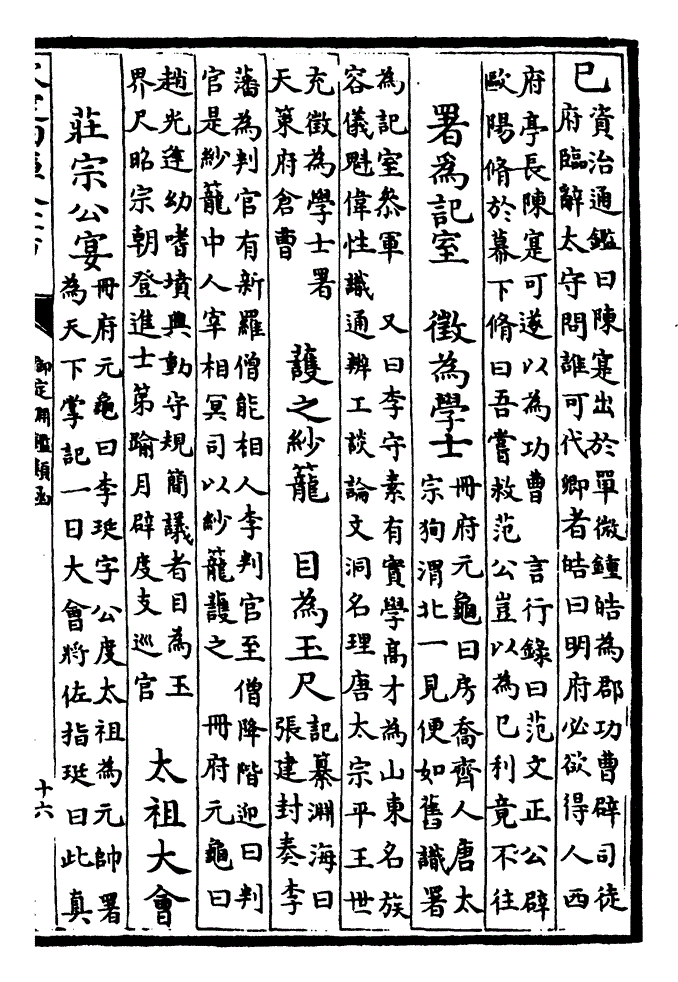 巳資治通鑑曰陳寔出於單微鍾皓為郡功曹辟司徒
府臨辭太守問誰可代卿者皓曰明府必欲得人西
府亭長陳寔可遂以為功曹 言行錄曰范文正公辟
歐陽脩於幕下脩曰吾嘗救范公豈以為已利竟不往
署爲記室 徵為學士 冊府元龜曰房喬齊人唐太
宗狥渭北一見便如舊識署
為記室叅軍 又曰李守素有實學高才為山東名族
容儀魁偉性識通辨工談論文洞名理唐太宗平王世
充徵為學士署
天䇿府倉曹
護之紗籠 目為玉尺 記纂淵海曰
張建封奏李
藩為判官有新羅僧能相人李判官至僧降階迎曰判
官是紗籠中人宰相冥司以紗籠護之 冊府元龜曰
趙光逢幼嗜墳典動守規簡議者目為玉
界尺昭宗朝登進士第踰月辟度支巡官
太祖大會
莊宗公宴 冊府元龜曰李珽字公度太祖為元帥署
為天下掌記一日大會將佐指珽曰此真
御定淵鑑類函
十六